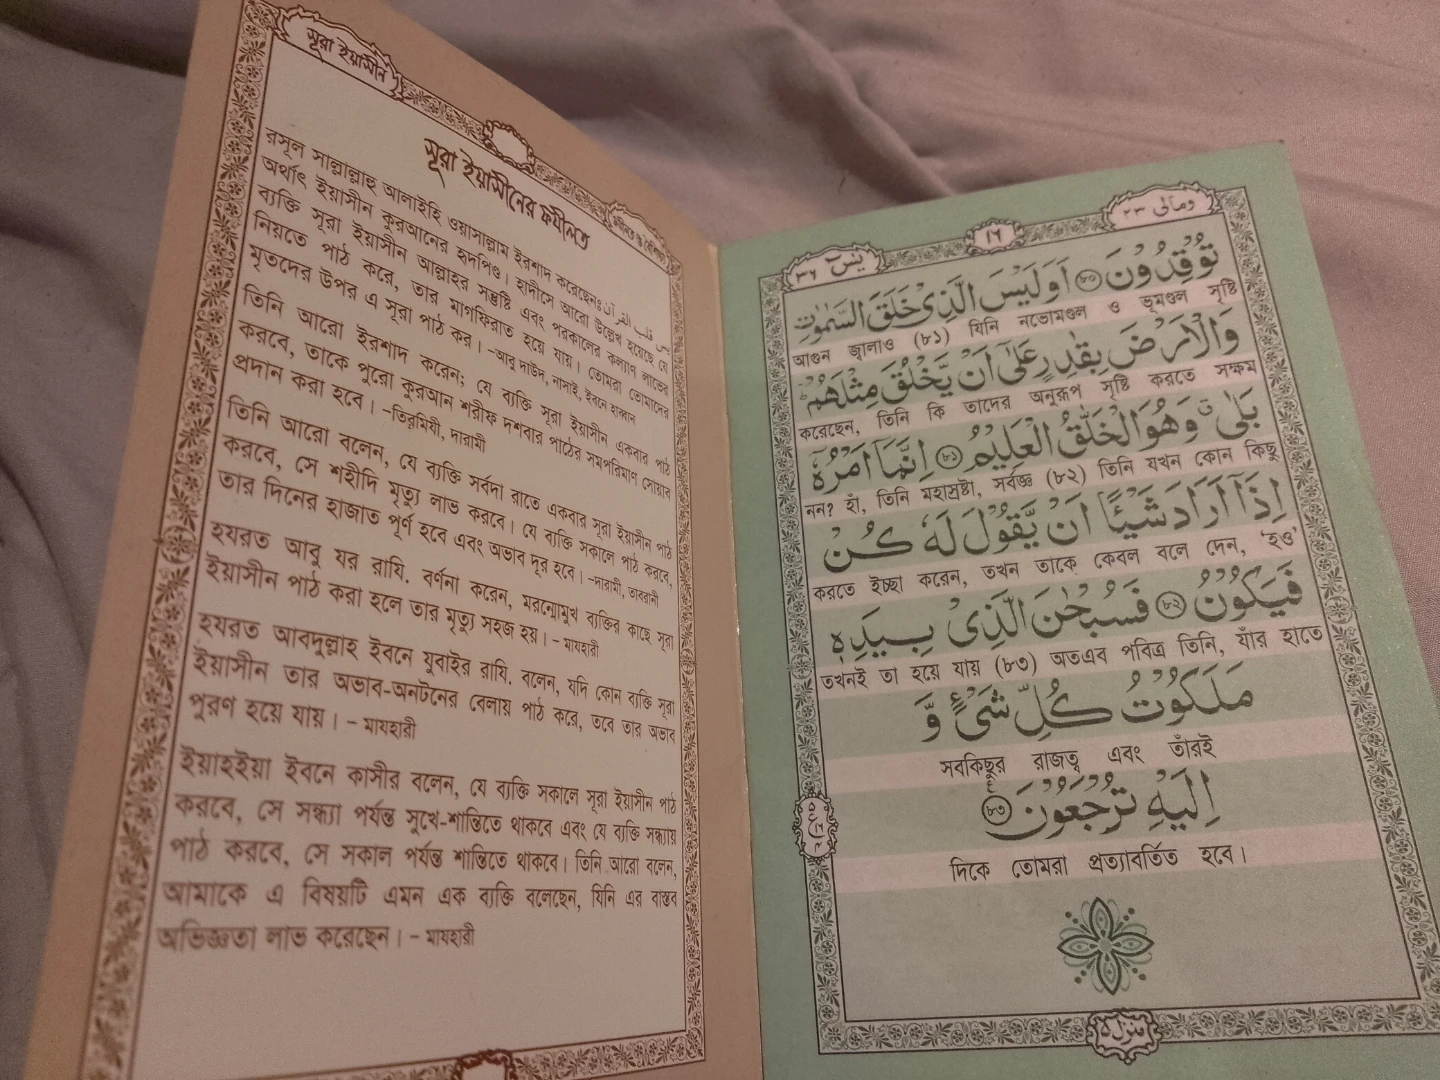 সূরা ইয়াসীন
সূরা ইয়াসীনের ফযীলত
রসূল সাল্লাল্লাহু আলাইহি ওয়াসাল্লাম ইরশাদ করেছেনঃ يس قلب القرآن
অর্থাৎ ইয়াসীন কুরআনের হৃদপিণ্ড। হাদীসে আরো উল্লেখ হয়েছে যে
ব্যক্তি সূরা ইয়াসীন আল্লাহর সন্তুষ্টি এবং পরকালের কল্যাণ লাভের
নিয়তে পাঠ করে, তার মাগফিরাত হয়ে যায়। তোমরা তোমাদের
মৃতদের উপর এ সূরা পাঠ কর। -আবু দাউদ, নাসাই, ইবনে হাব্বান
তিনি আরো ইরশাদ করেন; যে ব্যক্তি সূরা ইয়াসীন একবার পাঠ
করবে, তাকে পুরো কুরআন শরীফ দশবার পাঠের সমপরিমাণ সোয়াব
প্রদান করা হবে। -তিরমিযী, দারামী
তিনি আরো বলেন, যে ব্যক্তি সর্বদা রাতে একবার সূরা ইয়াসীন পাঠ
করবে, সে শহীদি মৃত্যু লাভ করবে। যে ব্যক্তি সকালে পাঠ করবে,
তার দিনের হাজাত পূর্ণ হবে এবং অভাব দূর হবে। -দারামী, তাবরানী
হযরত আবু যর রাযি. বর্ণনা করেন, মরন্মোমুখ ব্যক্তির কাছে সূরা
ইয়াসীন পাঠ করা হলে তার মৃত্যু সহজ হয়। - মাযহারী
হযরত আবদুল্লাহ ইবনে যুবাইর রাযি. বলেন, যদি কোন ব্যক্তি সূরা
ইয়াসীন তার অভাব-অনটনের বেলায় পাঠ করে, তবে তার অভাব
পূরণ হয়ে যায়। - মাযহারী
ইয়াহইয়া ইবনে কাসীর বলেন, যে ব্যক্তি সকালে সূরা ইয়াসীন পাঠ
করবে, সে সন্ধ্যা পর্যন্ত সুখে-শান্তিতে থাকবে এবং যে ব্যক্তি সন্ধ্যায়
পাঠ করবে, সে সকাল পর্যন্ত শান্তিতে থাকবে। তিনি আরো বলেন,
আমাকে এ বিষয়টি এমন এক ব্যক্তি বলেছেন, যিনি এর বাস্তব
অভিজ্ঞতা লাভ করেছেন। - মাযহারী
ومالی ٢٣
١٦
يٰسٓ ٣٦
تُوْقِدُوْنَ ۝٨٠ اَوَلَيْسَ الَّذِىْ خَلَقَ السَّمٰوٰتِ
আগুন জ্বালাও (৮১) যিনি নভোমণ্ডল ও ভূমণ্ডল সৃষ্টি
وَالْاَرْضَ بِقٰدِرٍ عَلٰٓى اَنْ يَّخْلُقَ مِثْلَهُمْ ؕ
করেছেন, তিনি কি তাদের অনুরূপ সৃষ্টি করতে সক্ষম
بَلٰى ٯ وَهُوَ الْخَلّٰقُ الْعَلِيْمُ ۝٨١ اِنَّمَاۤ اَمْرُهٗۤ
নন? হাঁ, তিনি মহাস্রষ্টা, সর্বজ্ঞ (৮২) তিনি যখন কোন কিছু
اِذَاۤ اَرَادَ شَيْـًٔا اَنْ يَّقُوْلَ لَهٗ كُنْ
করতে ইচ্ছা করেন, তখন তাকে কেবল বলে দেন, ‘হও’
فَيَكُوْنُ ۝٨٢ فَسُبْحٰنَ الَّذِىْ بِيَدِهٖ
তখনই তা হয়ে যায় (৮৩) অতএব পবিত্র তিনি, যাঁর হাতে
مَلَكُوْتُ كُلِّ شَىْءٍ وَّ
সবকিছুর রাজত্ব এবং তাঁরই
اِلَيْهِ تُرْجَعُوْنَ ۝٨٣
দিকে তোমরা প্রত্যাবর্তিত হবে।
منزل ٥